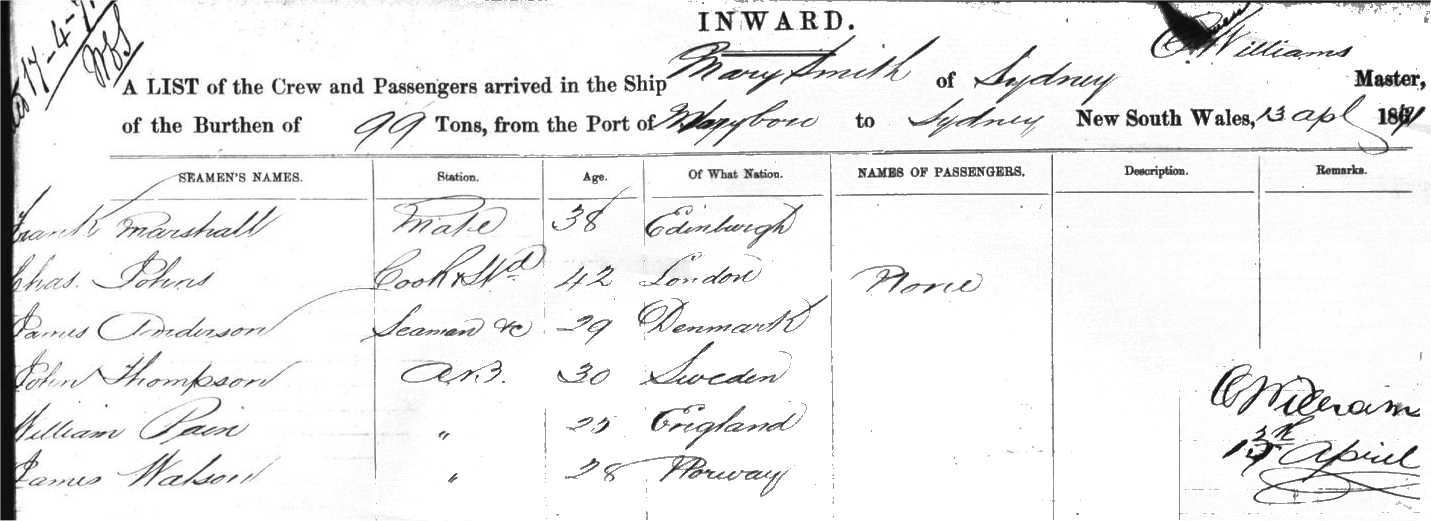 17-4-7
INWARD.
A LIST of the Crew and Passengers arrived in the Ship Mary Smith of Sydney C Williams Master,
of the Burthen of 99 Tons, from the Port of to Sydney New South Wales, 13 apl 1871
SEAMEN'S NAMES. Station. Age. Of What Nation. NAMES OF PASSENGERS. Description. Remarks.
Frank Marshall Mate 38 Edinburgh
Chas. Johns Cook & Std 42 London None
James Anderson Seaman &c 29 Denmark
John Thompson A.B. 30 Sweden
William Pain " 25 England
James Watson " 28 Norway
C Williams
13th April